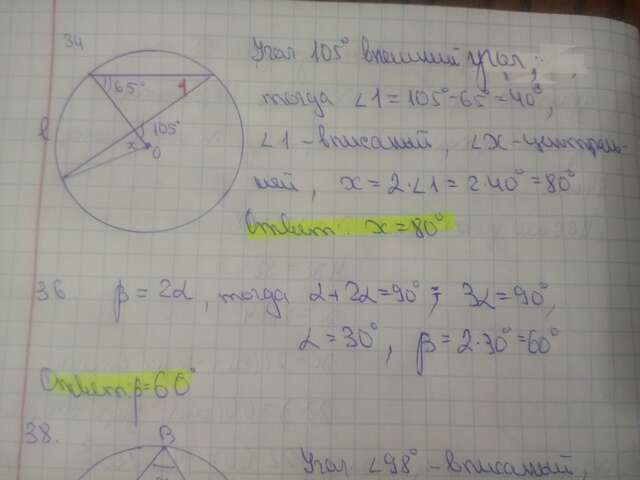 34
Угол 105° внешний угол;
65° 1
тогда ∠1=105°-65°=40°,
l 105°
x O
∠1-вписаный, ∠x-централь-
ный, x=2·∠1=2·40°=80°
Ответ: x=80°
36 β=2α, тогда α+2α=90°; 3α=90°,
α=30°, β=2·30°=60°
Ответ β=60°
38.
B
Угол ∠98°-вписаный,